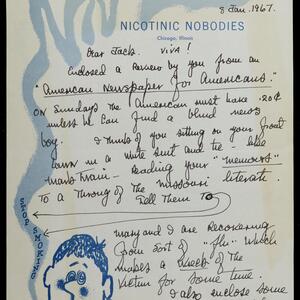 8 Jan. 1967.
NICOTINIC NOBODIES
Chicago, Illinois
Dear Jack. VIVA!
Enclosed a review by you from an
"American Newspaper for Americans."
ON Sundays the American must have 20¢
unless he can find a blind news
boy. I think of you sitting on your front
lawn in a white suit and tie – like
Mark Twain – reading your "memoirs"
to a throng of the Missouri literati.
Tell Them TO
STOP SMOKING
Mary and I are recovering
from sort of "flu" which
makes a wreck of the
victim for some time.
I also enclose some